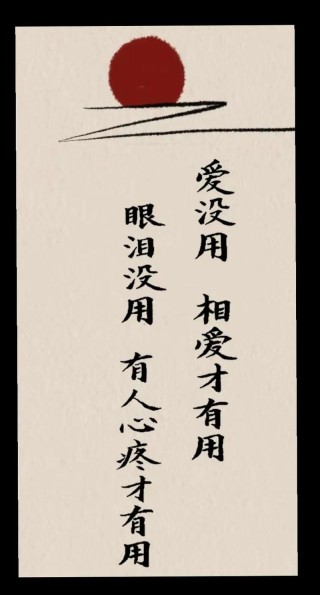 爱没用 相爱才有用
眼泪没用 有人心疼才有用